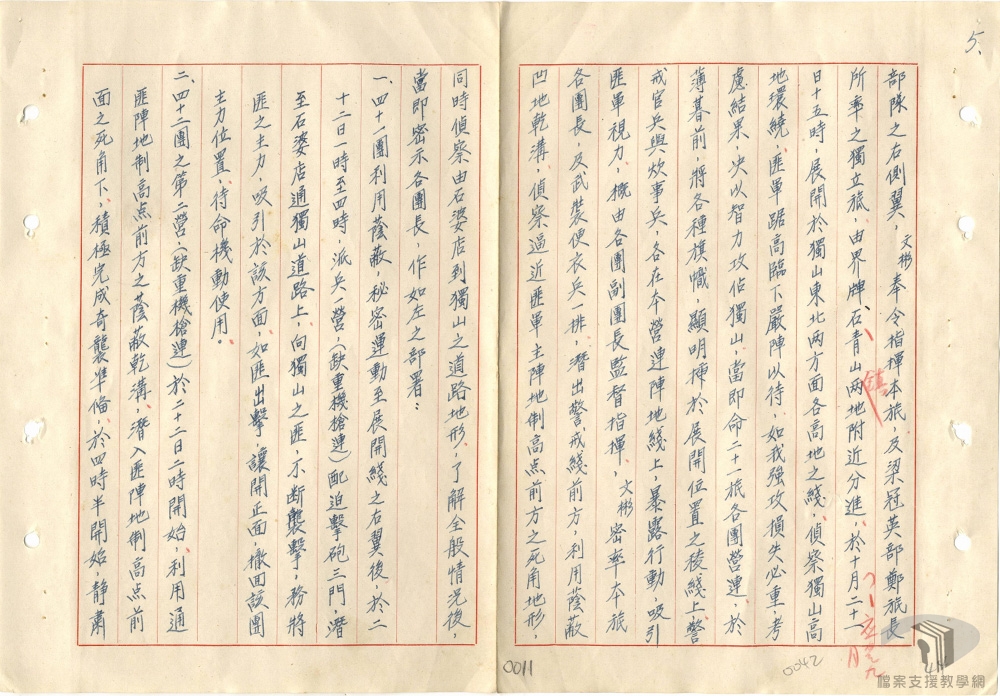 5.
部隊之右側翼，文彬奉令指揮本旅，及梁冠英部鄭旅長
所率之獨立旅，由界牌、石青山兩地附近分進，於十月二十一
日十五時，展開於獨山東北兩方面各高地之綫，偵察獨山高
地環繞，匪軍踞高臨下嚴陣以待，如我強攻損失必重，考
慮結果，決以智力攻佔獨山，當即命二十一旅各團營連，於
薄暮前，將各種旗幟，顯明揷於展開位置之稜綫上，警
戒官兵與炊事兵，各在本營連陣地綫上，暴露行動，吸引
匪軍視力，概由各團副團長監督指揮，文彬密率本旅
各團長，及武裝便衣兵一排，潛出警戒綫前方，利用蔭蔽
凹地乾溝，偵察逼近匪軍主陣地制高点前方之死角地形，
鎮
0042
同時偵察由石婆店到獨山之道路地形，了解全般情況後，
當即密示各團長，作如左之部署：
一、四十一團利用蔭蔽，秘密運動至展開綫之右翼後，於二
十二日一時至四時，派兵一營，（缺重機槍連）配迫擊砲三門，潛
至石婆店通獨山道路上，向獨山之匪，不断襲擊，務將
匪之主力，吸引於該方面，如匪出擊，讓開正面，撤回該團
主力位置，待命機動使用。
二、四十二團之第二營，（缺重機槍連）於二十二日二時開始，利用通
匪陣地制高点前方之蔭蔽乾溝，潛入匪陣地制高点前
面之死角下，積極完成奇襲準偹，於四時半開始静肅
0011
檔案支援教學網